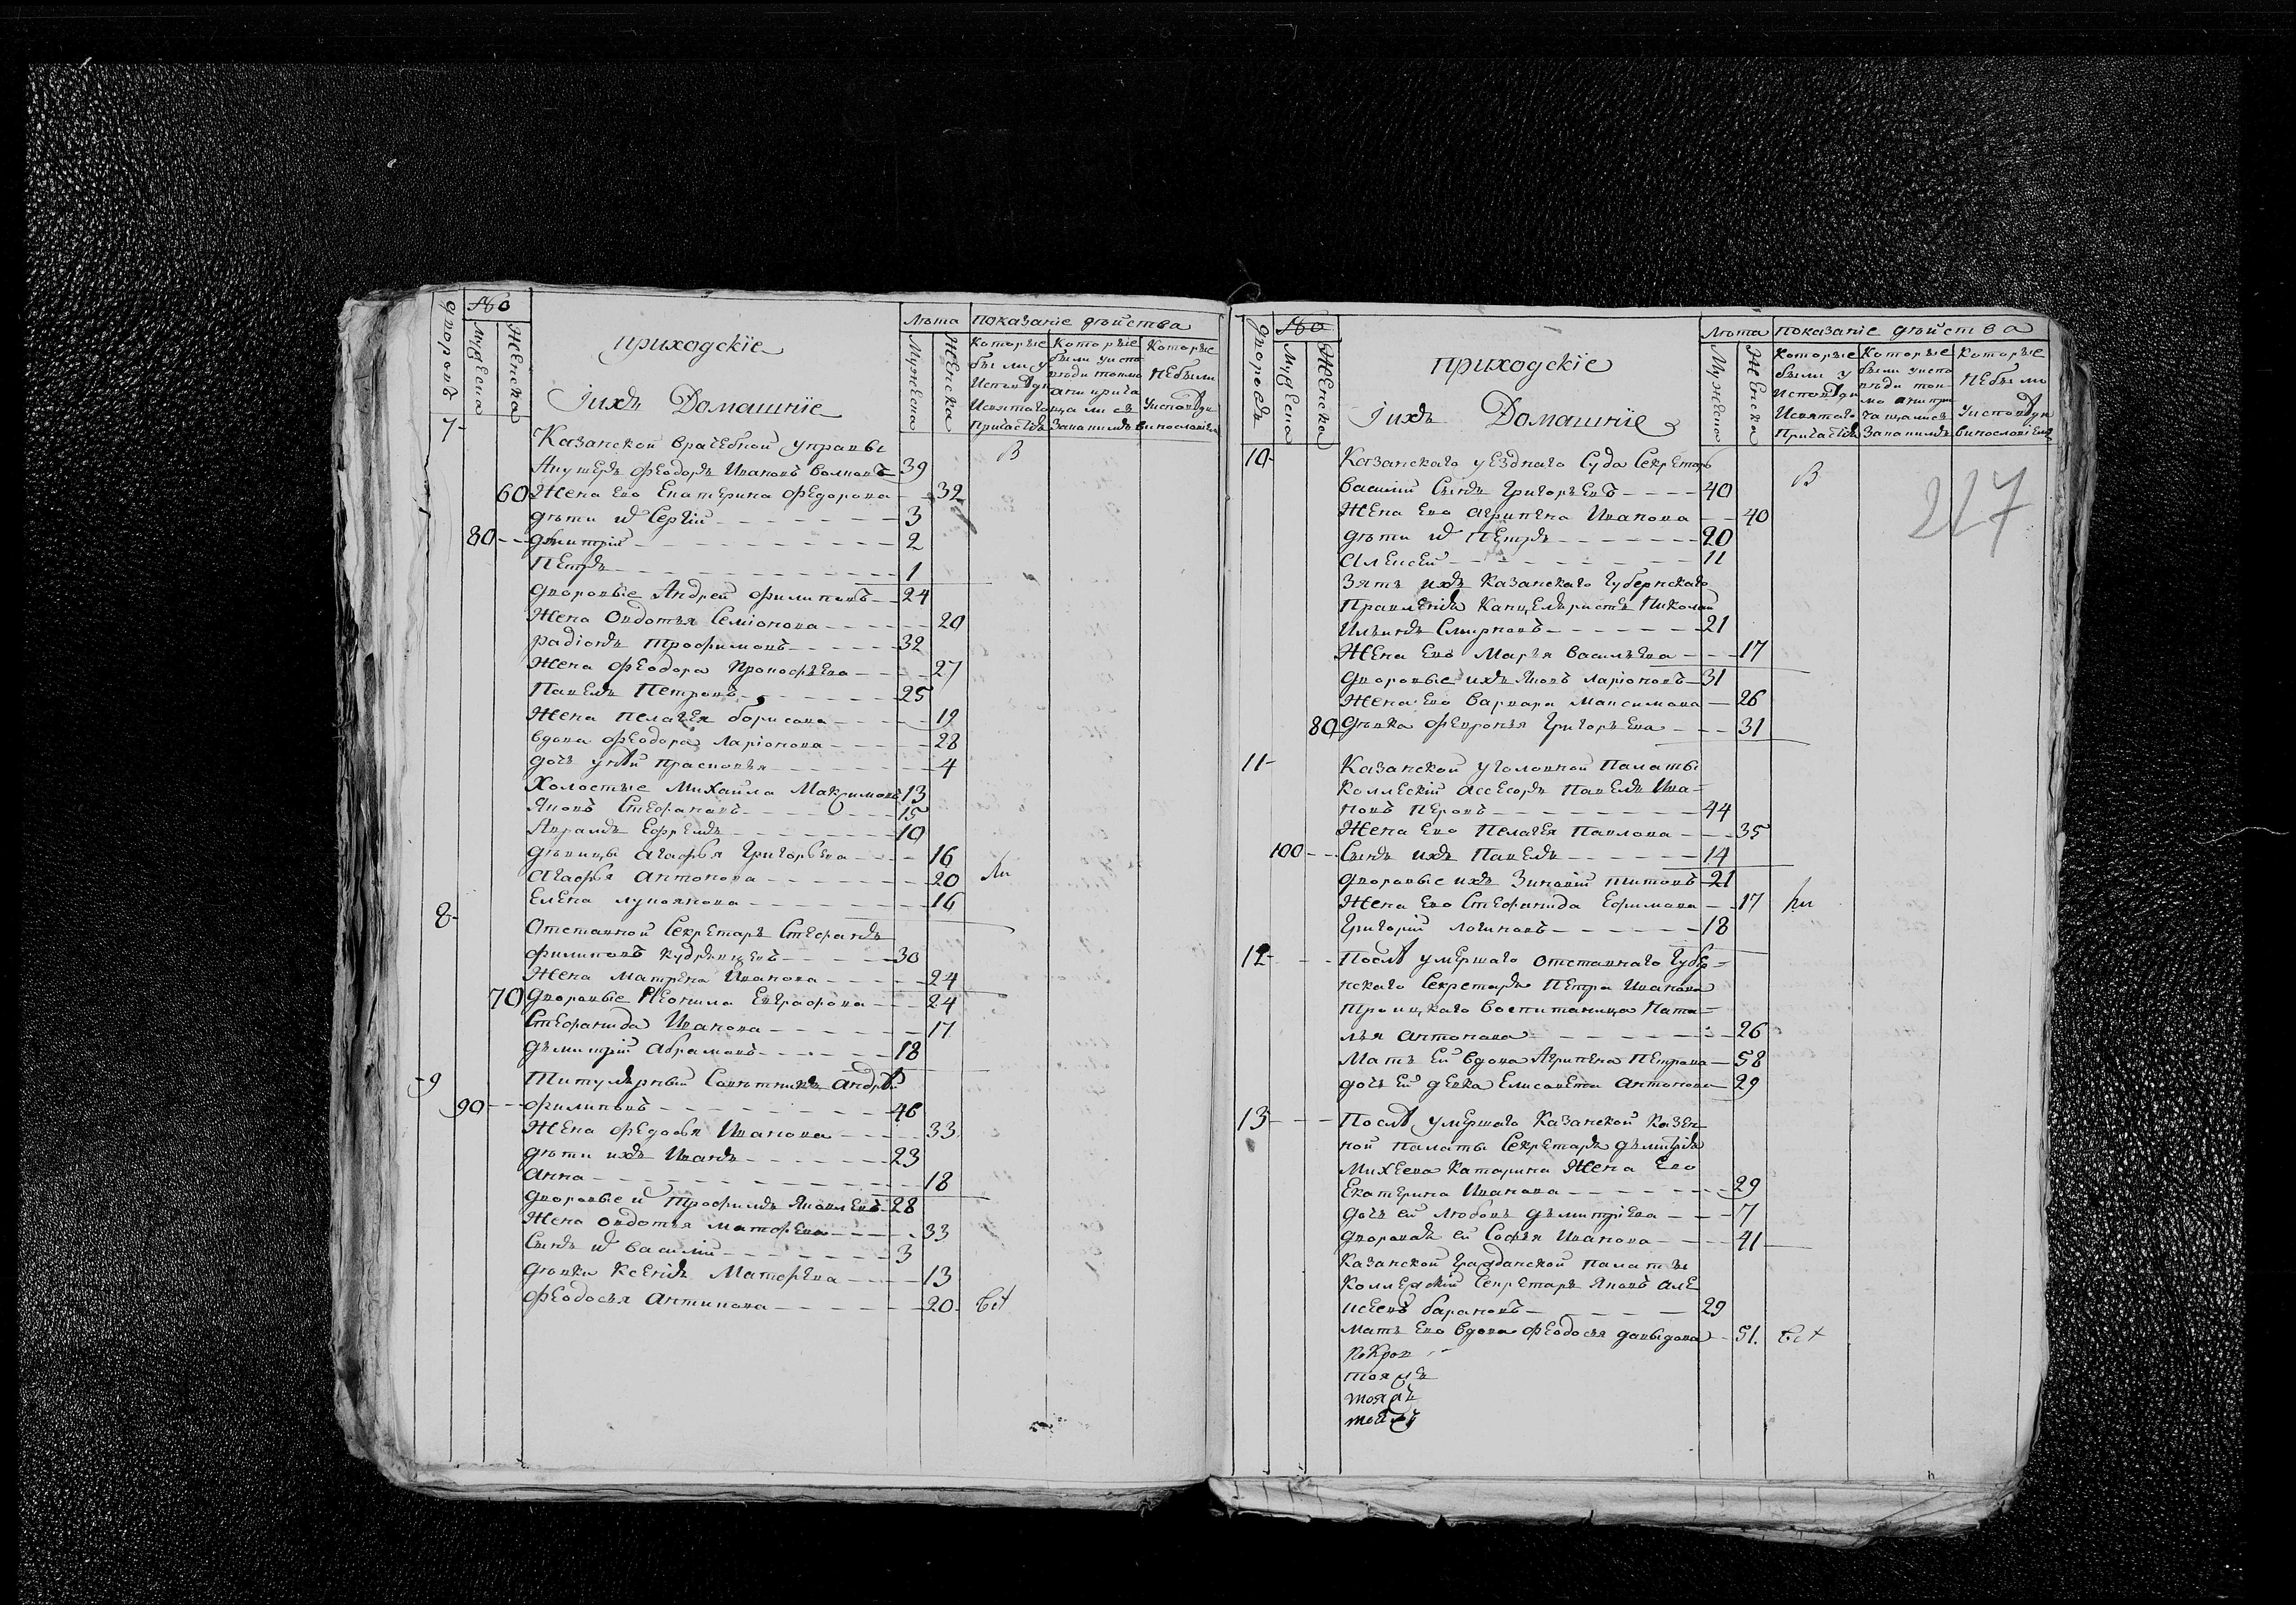 дворовъ
Мужеска
Женска
приходскіе
Ихъ Домашніе
Лѣта
показаніе дѣйства
Мужеска
Женска
Которые были у Исповѣди и Святаго Причастія
Которые были у исповѣди токмо а не причащались
Которые не были у исповѣди
7
Казанской врачебной Управы
В
Акушеръ Феодоръ Ивановъ 39
60 Жена ево Екатерина Федорова 32
дѣти Сергій 3
80 дмитрій 2
Петръ 1
дворовые Андрей Филиповъ 24
Жена Овдотья Семіонова 20
радіонъ Трофимовъ 32
Жена Феодора Прокофьева 27
Павелъ Петровъ 25
Жена Пелагея борисова 19
вдова Феодора Ларіонова 28
дочь у ней Прасковья 4
Холостые Михайла Максимовъ 13
Яковъ Стефановъ 15
Авраамъ Ефремъ 10
дѣвицы Агафья Григорьева 16
Агафья Антонова 20
Елена лукоянова 16
8
Отставной Секретарь Стефанъ
Филиповъ Кудрявцевъ 30
Жена Матрена Иванова 24
70 дворовые Неонила Евграфова 24
Стефанида Иванова 17
дьмитрій Абрамовъ 18
9
Титулярный Совѣтникъ Андрей
90 Филиповъ 46
Жена Федосья Иванова 33
дѣти ихъ Иванъ 23
Анна 18
дворовые Трофимъ Яковлевъ 28
Жена Овдотья Матфеева 33
Сынъ Василій 3
дѣвки Ксенія Матфеева 13
Феодосья Антипова 20
дворовъ
Мужеска
Женска
приходскіе
Ихъ Домашніе
Лѣта
показаніе дѣйства
Мужеска
Женска
Которые были у Исповѣди и Святаго Причастія
Которые были у исповѣди токмо а не причащались
Которые не были у исповѣди
217
10
Казанскаго уезднаго Суда Секретарь
В
Василій Сынъ Григорьевъ 40
Жена ево Агрипена Иванова 40
дѣти Петръ 20
Алексей 11
Зять ихъ Казанскаго Губернскаго
Правленія Канцеляристъ Николай
Ильинъ Смирновъ 21
Жена ево Марья Васильева 17
дворовые ихъ Яковъ Ларіоновъ 31
Жена ево Варвара Максимова 26
80 дѣвка Февронья Григорьева 31
11
Казанской Уголовной Палаты
Коллескій Ассесоръ Павелъ Ива=
новъ Перовъ 44
Жена ево Пелагея Павлова 35
100 Сынъ ихъ Павелъ 14
дворовые ихъ Зиновій Титовъ 21
Жена ево Стефанида Ефимова 17
Григорій Логиновъ 18
12
Послѣ умершаго отставнаго Губер=
нскаго Секретаря Петра Иванова
Троицкаго воспитаница Ната=
лья Антонова 26
Мать ей вдова Агрипена Петрова 58
дочь ей девка Елисавета Антонова 29
13
Послѣ умершаго Казанской Казен
ной Палаты Секретаря дьмитрія
Михеева Катарина Жена Ево
Екатерина Иванова 29
дочь ей Любовь дьмитріева 7
дворовая ей Софья Иванова 41
Казанской Гражданской Палаты
Коллежскій Секретарь Яковъ Але
ксеевъ барановъ 29
Мать ево вдова Феодосья давыдова 51